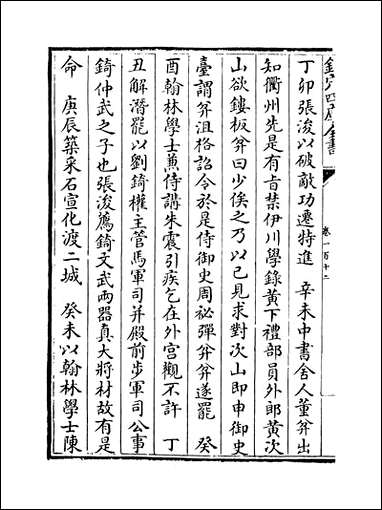 欽定四庫全書
卷一百十二
丁卯張浚以破敵功遷特進　辛未中書舍人董弅出
知衢州先是有㫖禁伊川學錄黄下禮部員外郎黄次
山欲鏤板弅曰少俟之乃以己見求對次山即申御史
臺謂弅沮格詔令於是侍御史周祕彈弅弅遂罷　癸
酉翰林學士兼侍講朱震引疾乞在外宫觀不許　丁
丑解潛罷以劉錡權主管馬軍司并殿前步軍司公事
錡仲武之子也張浚薦錡文武兩器真大將材故有是
命　庚辰築采石宣化渡二城　癸未以翰林學士陳